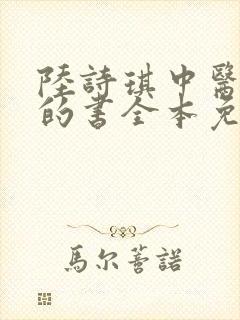 陸詩琪中醫
的書全本免
馬尔薈諾